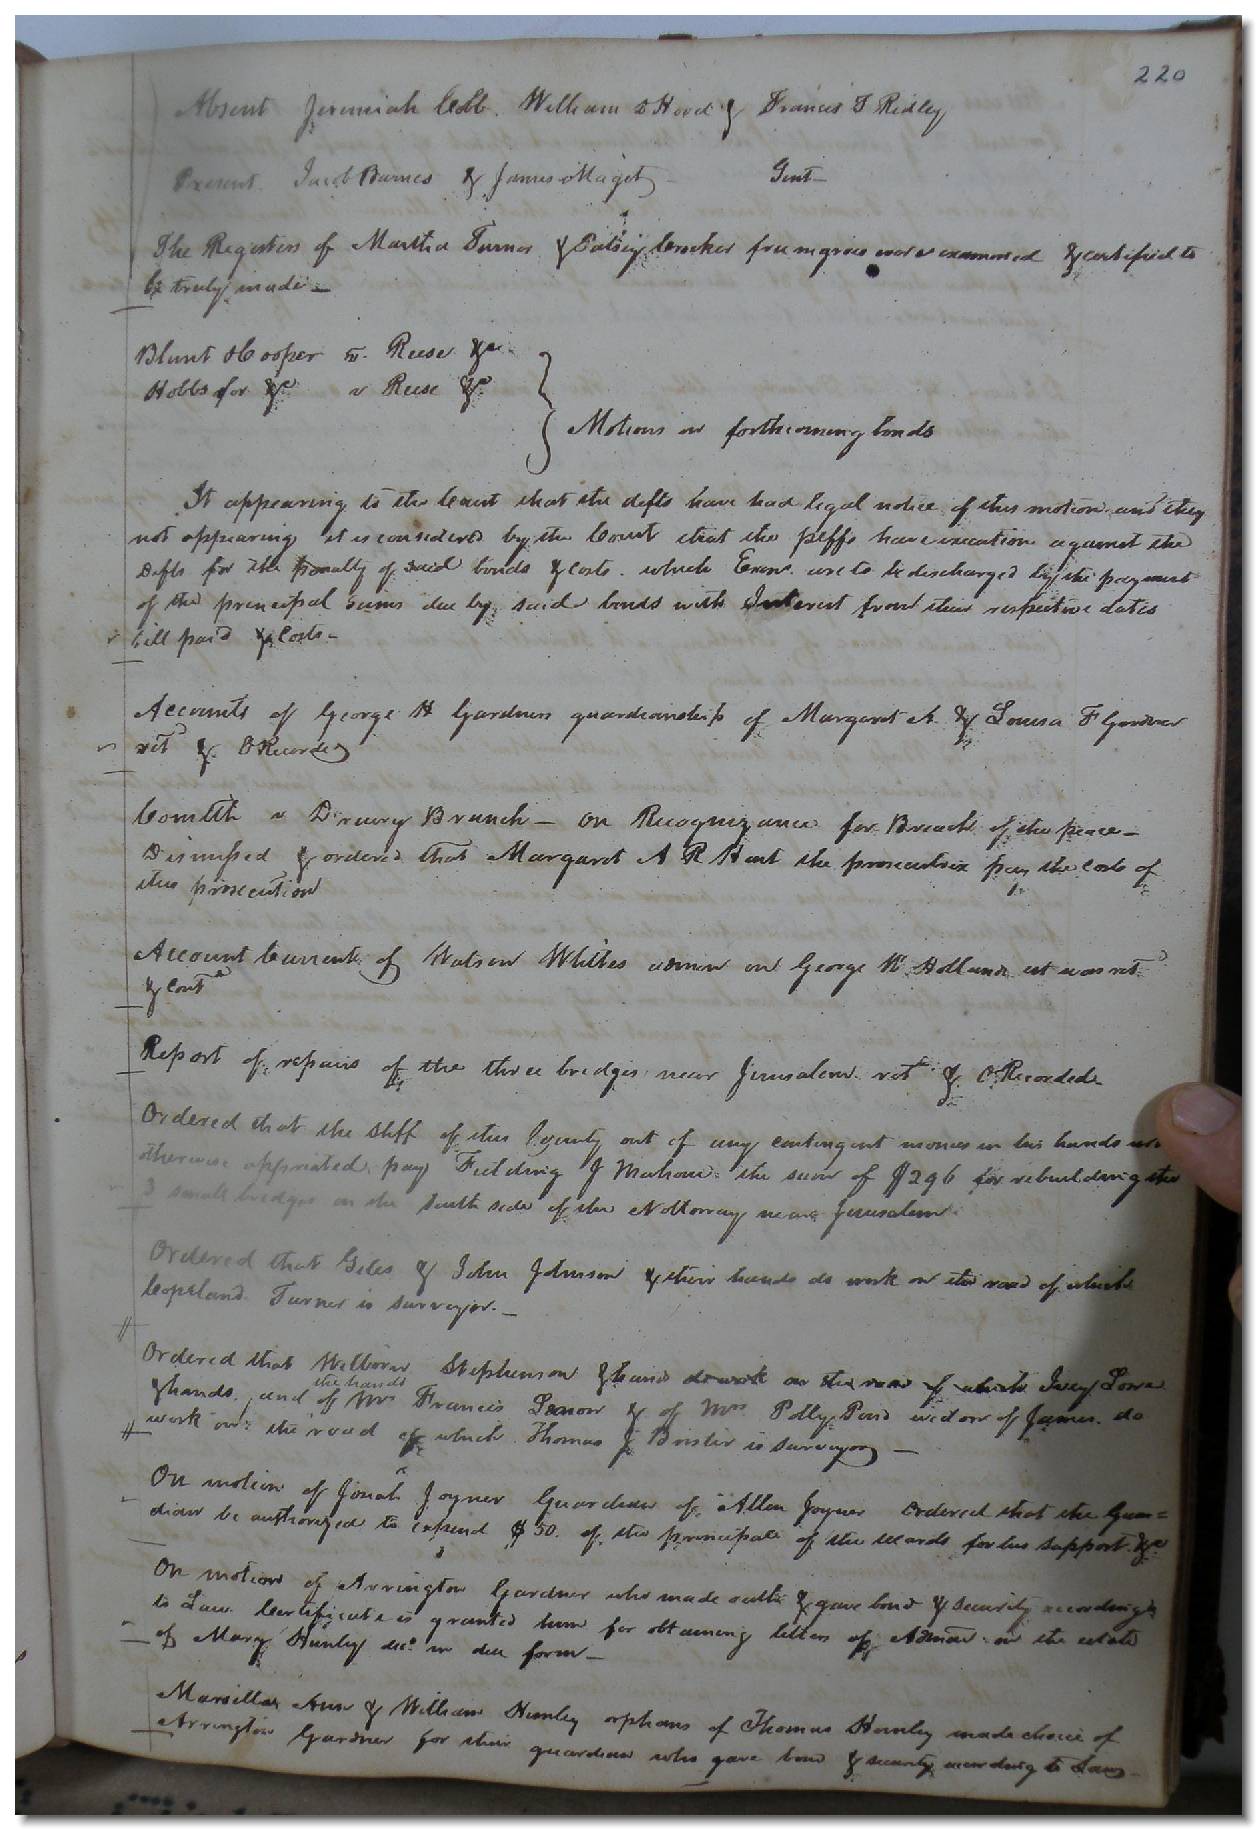 220
Absent Jeremiah Cobb. William B Hood & Francis T Ridley
Present. Jacob Barnes & James Maget - Gent-
The Registers of Martha Turner & Patsey Crocker free negroes were examined & certified to
be truly made -
Blunt & Cooper vs. Reese &c.
Hobbs for &c v Reese &c.
Motions on forthcoming bonds
It appearing to the Court that the defts have had legal notice of this motion and they
not appearing it is considered by the Court that the pltffs have execution against the
Defts for the penalty of said bonds & costs. which Exons. are to be discharged by the payment
of the principal sums due by said bonds with Interest from their respective dates
till paid & Costs-
Accounts of George H Gardners guardianship of Margaret A. & Louisa F Gardner
retd & ORecorded
Comlth v Drewry Branch - on Recognizance for Breach of the peace -
Dismissed & ordered that Margaret A R Hart the prosecutrix pay the costs of
this prosecution
Account Current of Watson Whites admon on George W Hollands est was retd
& Contd
Report of repairs of the three bridges near Jerusalem retd & ORecorded
Ordered that the Shff of this County out of any contingent monies in his hands not
otherwise appriated pay Fielding J Mahone the sum of $296 for rebuilding the
3 small bridges on the South side of the Nottoway near Jerusalem
Ordered that Giles & John Johnson & their hands do work on the road of which
Copeland Turner is surveyor. -
Ordered that Stephenson & hands do work on the road of which Ivey Lowe
the hands
& hands, and of Mrs Francis & of Mrs Polly Pond widow of James do
work on the road of which Thomas J Brister is surveyor -
On motion of Josiah Joyner Guardian of Allen Joyner ordered that the Guar=
dian be authorized to expend $50. of the principal of the wards for his support &c
On motion of Arrington Gardner who made oath & gave bond & security according
to Law Certificate is granted him for obtaining letters of Admon on the estate
of Mary Hunley decd. in due form -
Ann & William Hunley orphans of Thomas Hunley made choice of
Arrington Gardner for their guardian who gave bond & security according to Law -